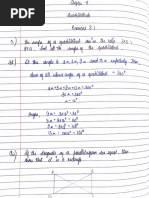 Chapter 8
Quadrilaterals
Exercise 8.1
Q1) The angles of a quadrilateral are in the ratio 3:5:
9:13. Find all the angles of the quadrilateral
Sol. Let the angles be 3x, 5x, 9x and 13x respectively. Then
Sum of all interior angles of a quadrilateral = 360°
3x+5x+9x+13x = 360°
30x = 360°
x = 12°
Angles,
3x = 3x12° = 36°
5x = 5x12° = 60°
9x = 9x12° = 108°
13x = 13x12° = 156°
Q2) If the diagonals of a parallelogram are equal, then
show that it is a rectangle.